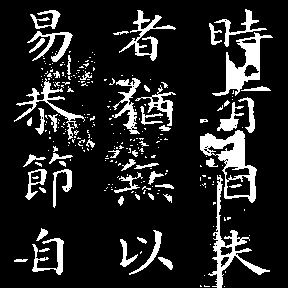 時有目夫
者猶無以
易恭節自